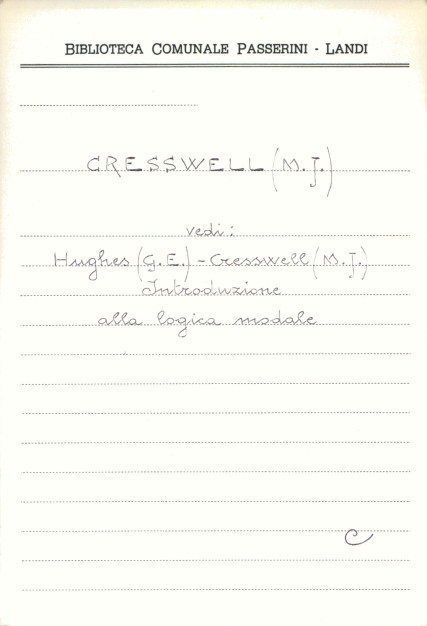 BIBLIOTECA COMUNALE PASSERINI - LANDI
CRESSWELL (M. J.)
vedi:
Hughes (G. E.) - Cresswell (M. J.)
Introduzione
alla logica modale
C